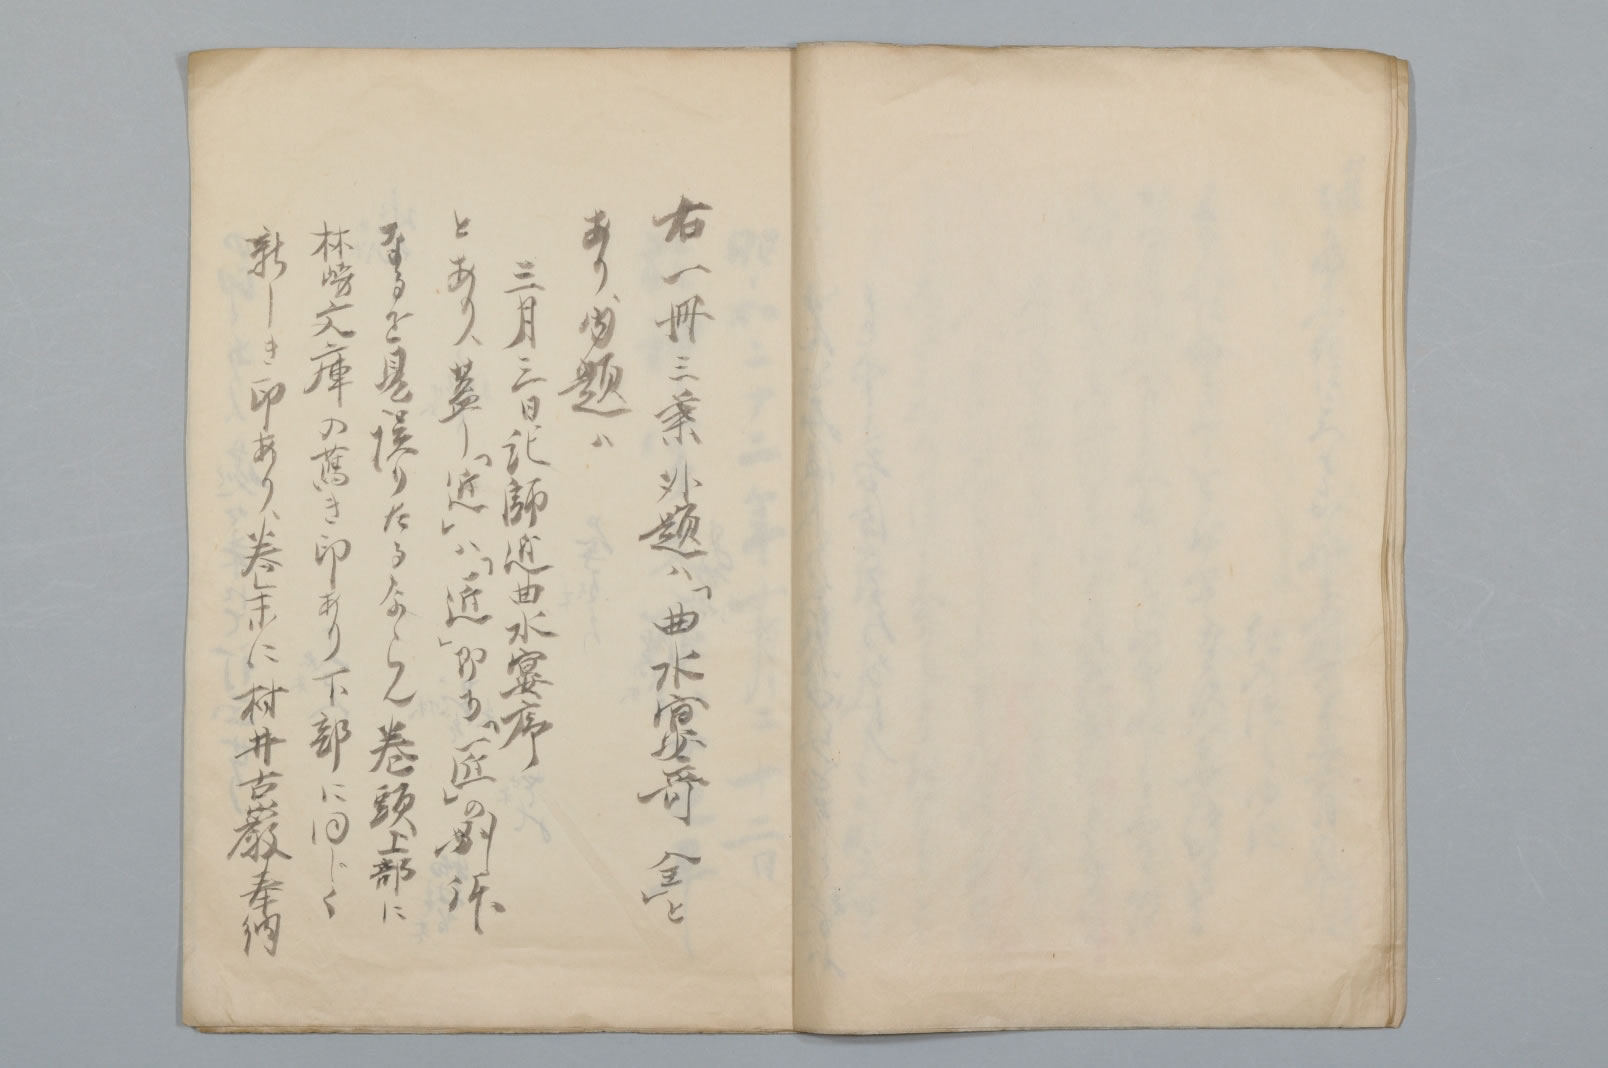 右一冊三葉外題ハ「曲水宴哥 全」と
あり内題ハ
三月三日記師近曲水宴序
とあり、蓋し「近」ハ「近」即ち「匠」の別体
なるを見誤りたるならん巻頭上部に
林崎文庫の旧き印あり下部に同じく
新しき印あり、巻末に村井古巌奉納